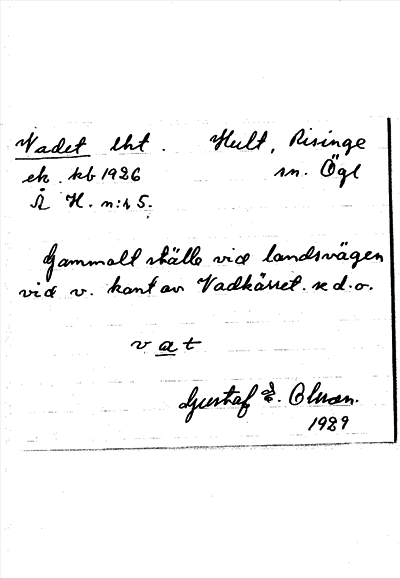 Vadet lht. Hult, Risinge
ek. kb 1926 sn. Ögl
Å H. n:r 5.
Gammalt ställe vid landsvägen
vid v. kant av Vadkärret. se d.o.
vat
Gustaf E. Olsson.
1929